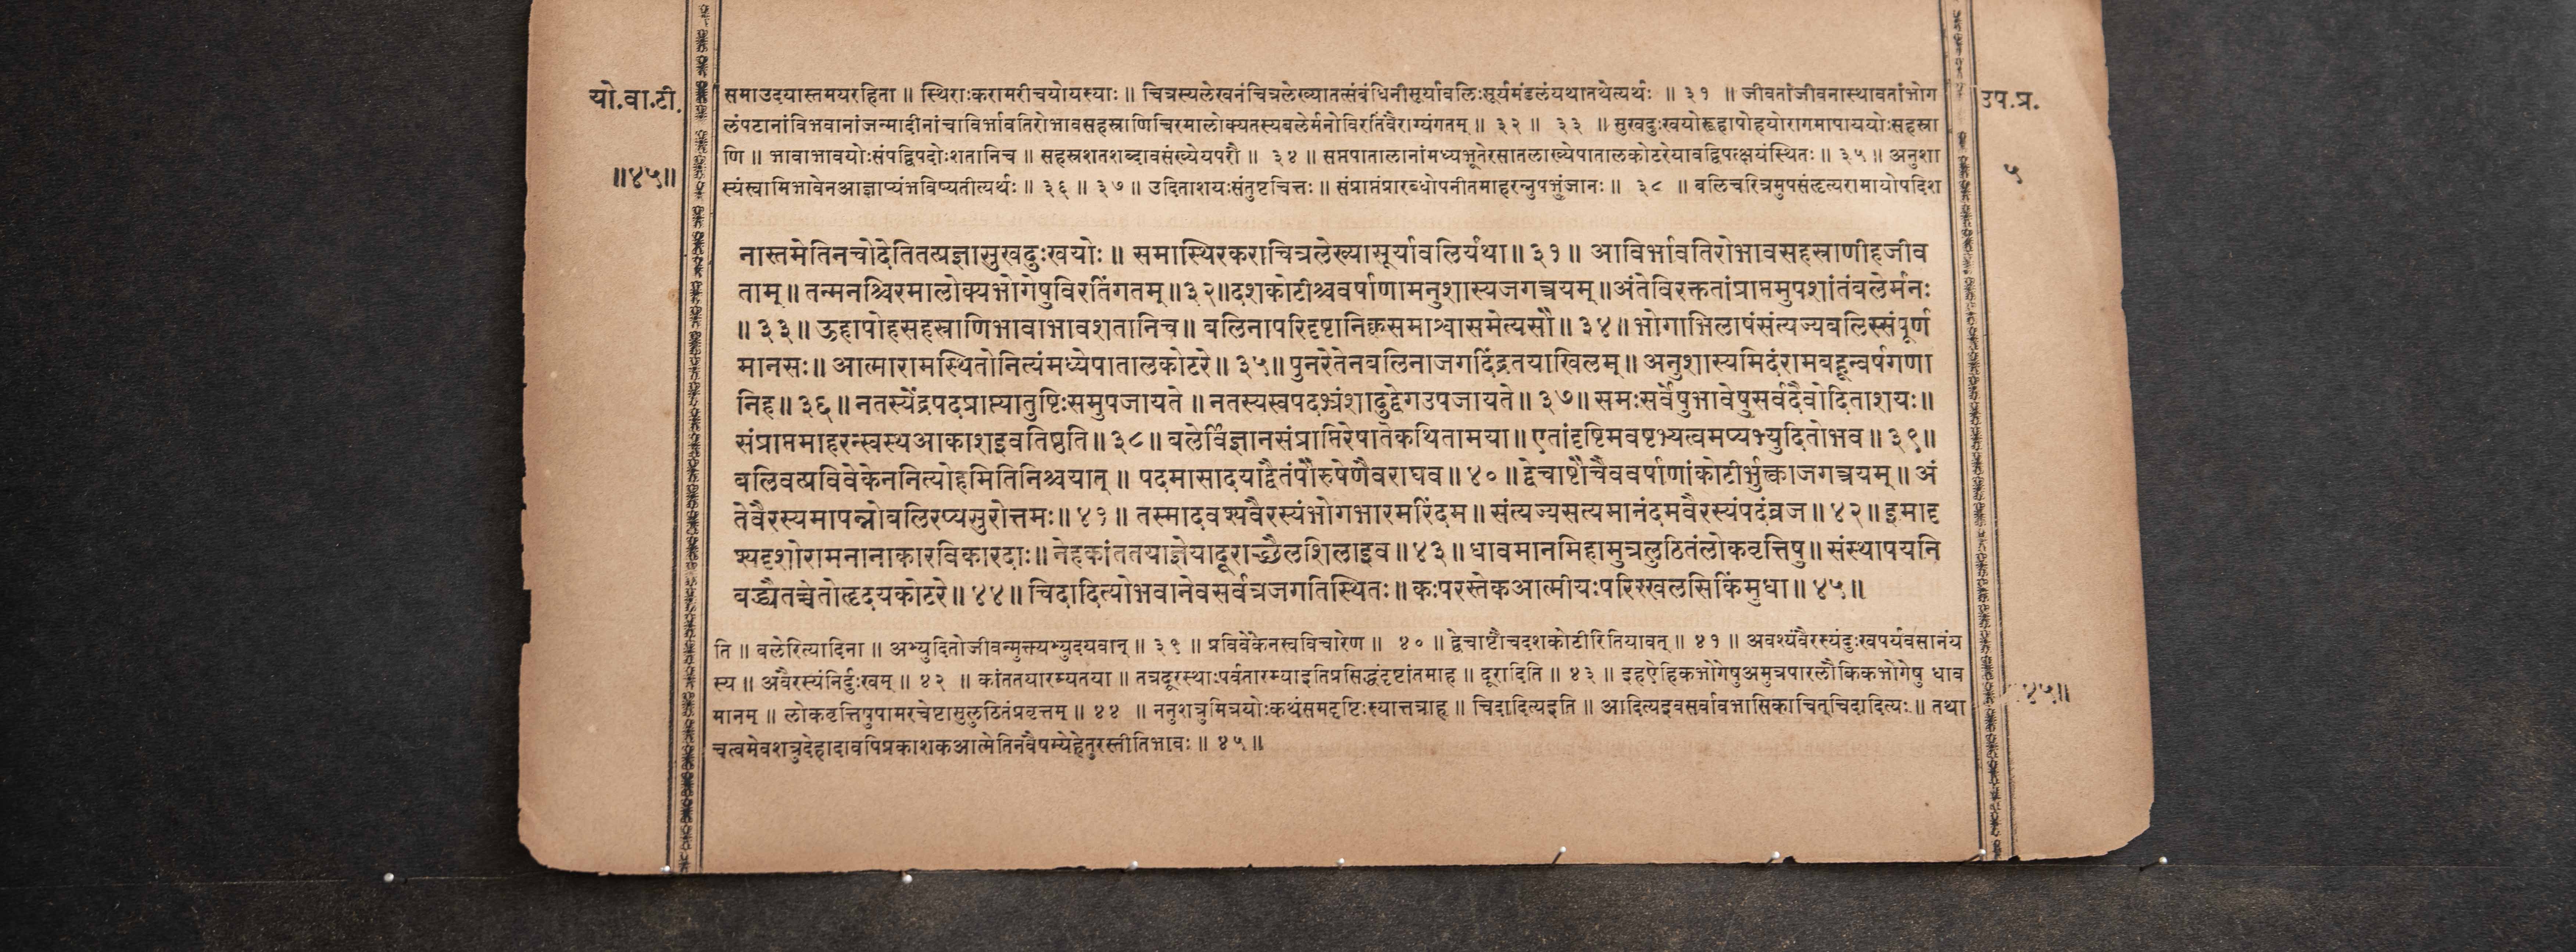 यो.वा.टी.
॥४५॥
उप.प्र.
५
समाउदयास्तमयरहिता ॥ स्थिराःकरामरीचयोयस्याः ॥ चित्रस्यलेखनंचित्रलेख्यातत्संबंधिनीसूर्यावलिःसूर्यमंडलंयथातथेत्यर्थः ॥ ३१ ॥ जीवतांजीवनास्थावतांभोग
लंपटानांविभवानांजन्मादीनांचाविर्भावतिरोभावसहस्राणिचिरमालोक्यतस्यबलेर्मनोविरतिंवैराग्यंगतम् ॥ ३२ ॥ ३३ ॥ सुखदुःखयोरूहापोहयोरागमापाययोःसहस्रा
णि ॥ भावाभावयोःसंपद्विपदोःशतानिच ॥ सहस्रशतशब्दावसंख्येयपरौ ॥ ३४ ॥ सप्तपातालानांमध्यभूतेरसातलाख्येपातालकोटरेयावद्विपत्क्षयंस्थितः ॥ ३५ ॥ अनुशा
स्यंस्वामिभावेनआज्ञाप्यंभविष्यतीत्यर्थः ॥ ३६ ॥ ३७ ॥ उदिताशयःसंतुष्टचित्तः ॥ संप्राप्तंप्रारब्धोपनीतमाहरन्नुपभुंजानः ॥ ३८ ॥ बलिचरित्रमुपसंहृत्यरामायोपदिश
नास्तमेतिनचोदेतितत्प्रज्ञासुखदुःखयोः ॥ समास्थिरकराचित्रलेख्यासूर्यावलिर्यथा ॥ ३१ ॥ आविर्भावतिरोभावसहस्राणीहजीव
ताम् ॥ तन्मनश्चिरमालोक्यभोगेषुविरतिंगतम् ॥३२॥दशकोटीश्चवर्षाणामनुशास्यजगत्त्रयम् ॥अंतेविरक्ततांप्राप्तमुपशांतंबलेर्मनः
॥ ३३ ॥ ऊहापोहसहस्राणिभावाभावशतानिच ॥ बलिनापरिदृष्टानिक्वसमाश्वासमेत्यसौ ॥ ३४ ॥ भोगाभिलाषंसंत्यज्यबलिस्संपूर्ण
मानसः ॥ आत्मारामस्थितोनित्यंमध्येपातालकोटरे ॥ ३५ ॥ पुनरेतेनबलिनाजगदिंद्रतयाखिलम् ॥ अनुशास्यमिदंरामबहून्वर्षगणा
निह ॥ ३६ ॥ नतस्येंद्रपदप्राप्त्यातुष्टिःसमुपजायते ॥ नतस्यस्वपदभ्रंशादुद्वेगउपजायते ॥ ३७ ॥ समःसर्वेषुभावेषुसर्वदैवोदिताशयः ॥
संप्राप्तमाहरन्स्वस्थआकाशइवतिष्ठति ॥ ३८ ॥ बलेर्विज्ञानसंप्राप्तिरेषातेकथितामया ॥ एतांदृष्टिमवष्टभ्यत्वमप्यभ्युदितोभव ॥ ३९ ॥
बलिवत्प्रविवेकेननित्योहमितिनिश्चयात् ॥ पदमासादयाद्वैतंपौरुषेणैवराघव ॥ ४० ॥ द्वेचाष्टौचैववर्षाणांकोटीर्भुक्त्वाजगत्त्रयम् ॥ अं
तेवैरस्यमापन्नोबलिरप्यसुरोत्तमः ॥ ४१ ॥ तस्मादवश्यवैरस्यंभोगभारमरिंदम ॥ संत्यज्यसत्यमानंदमवैरस्यंपदंव्रज ॥ ४२ ॥ इमादृ
श्यदृशोरामनानाकारविकारदाः ॥ नेहकांततयाज्ञेयादूराच्छैलशिलाइव ॥ ४३ ॥ धावमानमिहामुत्रलुठितंलोकवृत्तिषु ॥ संस्थापयनि
बद्ध्यैतच्चेतोहृदयकोटरे ॥ ४४ ॥ चिदादित्योभवानेवसर्वत्रजगतिस्थितः ॥ कःपरस्तेकआत्मीयःपरिस्खलसिकिंमुधा ॥ ४५ ॥
ति ॥ बलेरित्यादिना ॥ अभ्युदितोजीवन्मुक्त्यभ्युदयवान् ॥ ३९ ॥ प्रविवेकेनस्वविचारेण ॥ ४० ॥ द्वेचाष्टौचदशकोटीरितियावत् ॥ ४१ ॥ अवश्यंवैरस्यंदुःखपर्यवसानंय
स्य ॥ अवैरस्यंनिर्दुःखम् ॥ ४२ ॥ कांततयारम्यतया ॥ तत्रदूरस्थाःपर्वतारम्याइतिप्रसिद्धंदृष्टांतमाह ॥ दूरादिति ॥ ४३ ॥ इहऐहिकभोगेषुअमुत्रपारलौकिकभोगेषु धाव
मानम् ॥ लोकवृत्तिषुपामरचेष्टासुलुठितंप्रवृत्तम् ॥ ४४ ॥ ननुशत्रुमित्रयोःकथंसमदृष्टिःस्यात्तत्राह ॥ चिदादित्यइति ॥ आदित्यइवसर्वावभासिकाचित्चिदादित्यः ॥ तथा
चत्वमेवशत्रुदेहादावपिप्रकाशकआत्मेतिनवैषम्येहेतुरस्तीतिभावः ॥ ४५ ॥
४५॥